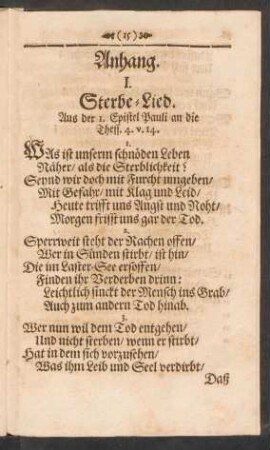 (15)
Anhang.
I.
Sterbe-Lied.
Aus der 1. Epistel Pauli an die
Thess. 4. v. 14.
1.
WAs ist unserm schnöden Leben
Näher/ als die Sterblichkeit?
Seynd wir doch mit Furcht umgeben/
Mit Gefahr/ mit Klag und Leid/
Heute trifft uns Angst und Noht/
Morgen frisst uns gar der Tod.
2.
Sperrweit steht der Rachen offen/
Wer in Sünden stirbt/ ist hin/
Die im Laster-See ersoffen/
Finden ihr Verderben drinn:
Leichtlich sinckt der Mensch ins Grab/
Auch zum andern Tod hinab.
3.
Wer nun wil dem Tod entgehen/
Und nicht sterben/ wenn er stirbt/
Hat in dem sich vorzusehen/
Was ihm Leib und Seel verdirbt/
Daß